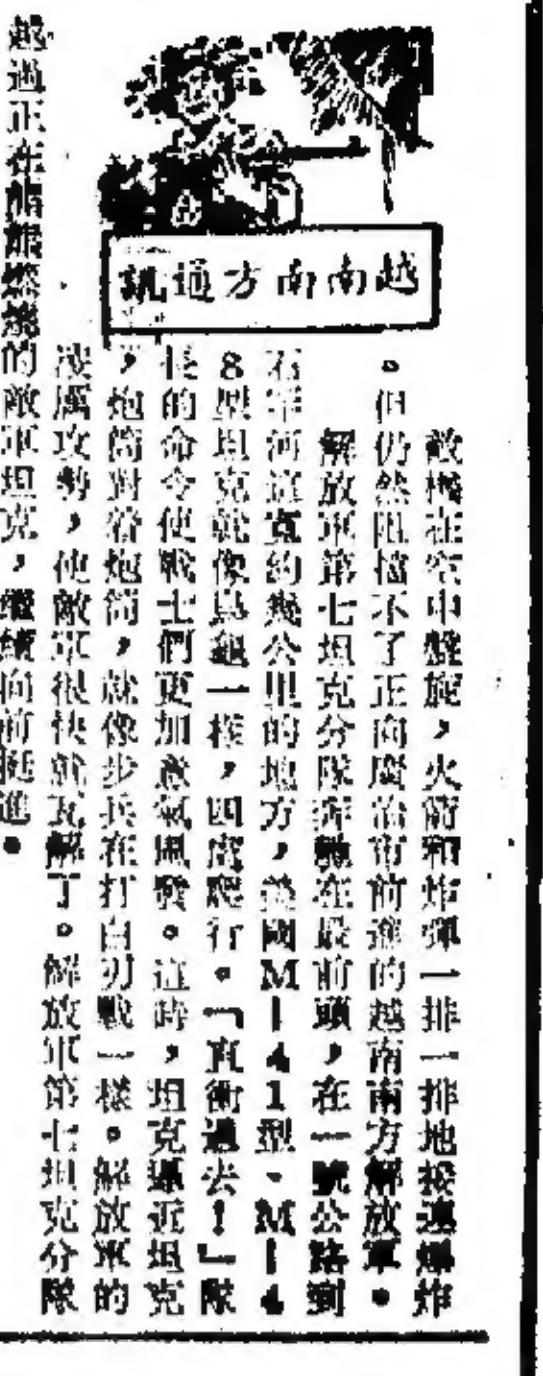 越南南方通訊
敵機在空中盤旋，火箭和炸彈一排一排地接連爆炸
。但仍然阻擋不了正向廣治市前進的越南南方解放軍。
解放軍第七坦克分隊奔馳在最前頭，在一號公路到
石罕河這寬約幾公里的地方，美國M—41型、M—4
8型坦克就像烏龜一樣，四處爬行。「直衝過去！」隊
長的命令使戰士們更加意氣風發。這時，坦克逼近坦克
，炮筒對着炮筒，就像步兵在打白刃戰一樣。解放軍的
凌厲攻勢，使敵軍很快就瓦解了。解放軍第七坦克分隊
越過正在熊熊燃燒的敵軍坦克，繼續向前挺進。